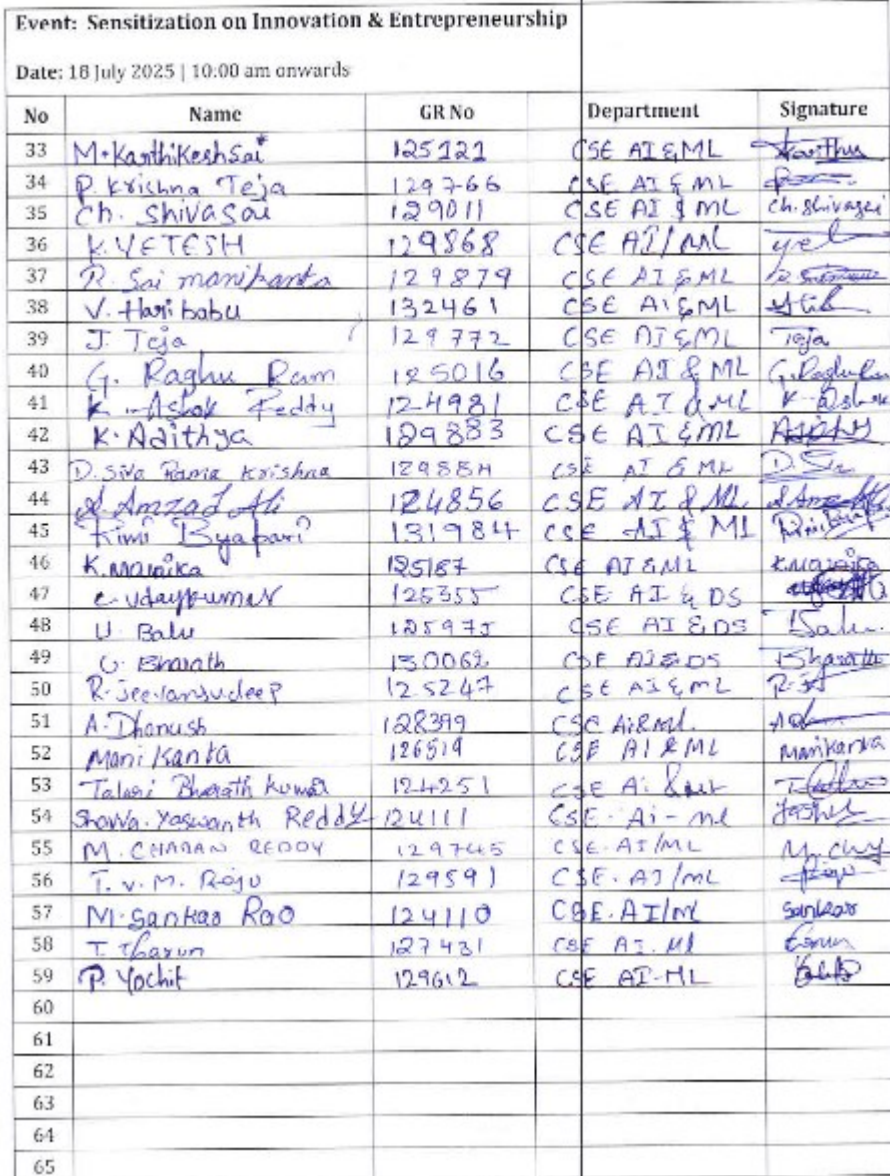 Event: Sensitization on Innovation & Entrepreneurship
Date: 18 July 2025 | 10:00 am onwards
No Name GR No Department Signature
33 M. KarthikeshSai 125121 CSE AI & ML Karthu
34 P. Krishna Teja 129766 CSE AI & ML
35 Ch. ShivaSai 129011 CSE AI & ML Ch. Shivasai
36 K. YETESH 129868 CSE AI/ML yet
37 R. Sai manikanta 129879 CSE AI & ML
38 V. Hari babu 132461 CSE Ai & ML
39 J. Teja 129772 CSE AI & ML Teja
40 G. Raghu Ram 125016 CSE AI & ML G. Raghu
41 K. Ashok Reddy 124981 CSE AI & ML K. Ashok
42 K. Adithya 129883 CSE AI & ML
43 D. Siva Rama Krishna 129884 CSE AI & ML
44 S. Amzad Ali 124856 CSE AI & ML
45 Rimi Byapari 131984 CSE AI & ML
46 K. Mounika 125187 CSE AI & ML K. Mounika
47 C. Udaykumar 125355 CSE AI & DS
48 U. Balu 125975 CSE AI & DS Balu
49 G. Bharath 130062 CSE AI & DS Bharath
50 R. Jeevansudeep 125247 CSE AI & ML
51 A. Dhanush 128399 CSE Ai & ml.
52 Mani Kanta 126519 CSE AI & ML Manikanta
53 Talari Bharath Kumar 124251 CSE Ai & ML
54 Yaswanth Reddy 124111 CSE. Ai - ml
55 M. CHARAN REDDY 129745 CSE. AI/ML
56 T. V. M. Raju 129591 CSE. AI/ML
57 M. Sankar Rao 124110 CSE. AI/ML Sankar
58 T. Tharun 127431 CSE AI. ML
59 P. Yochit 129612 CSE AI-ML
60
61
62
63
64
65